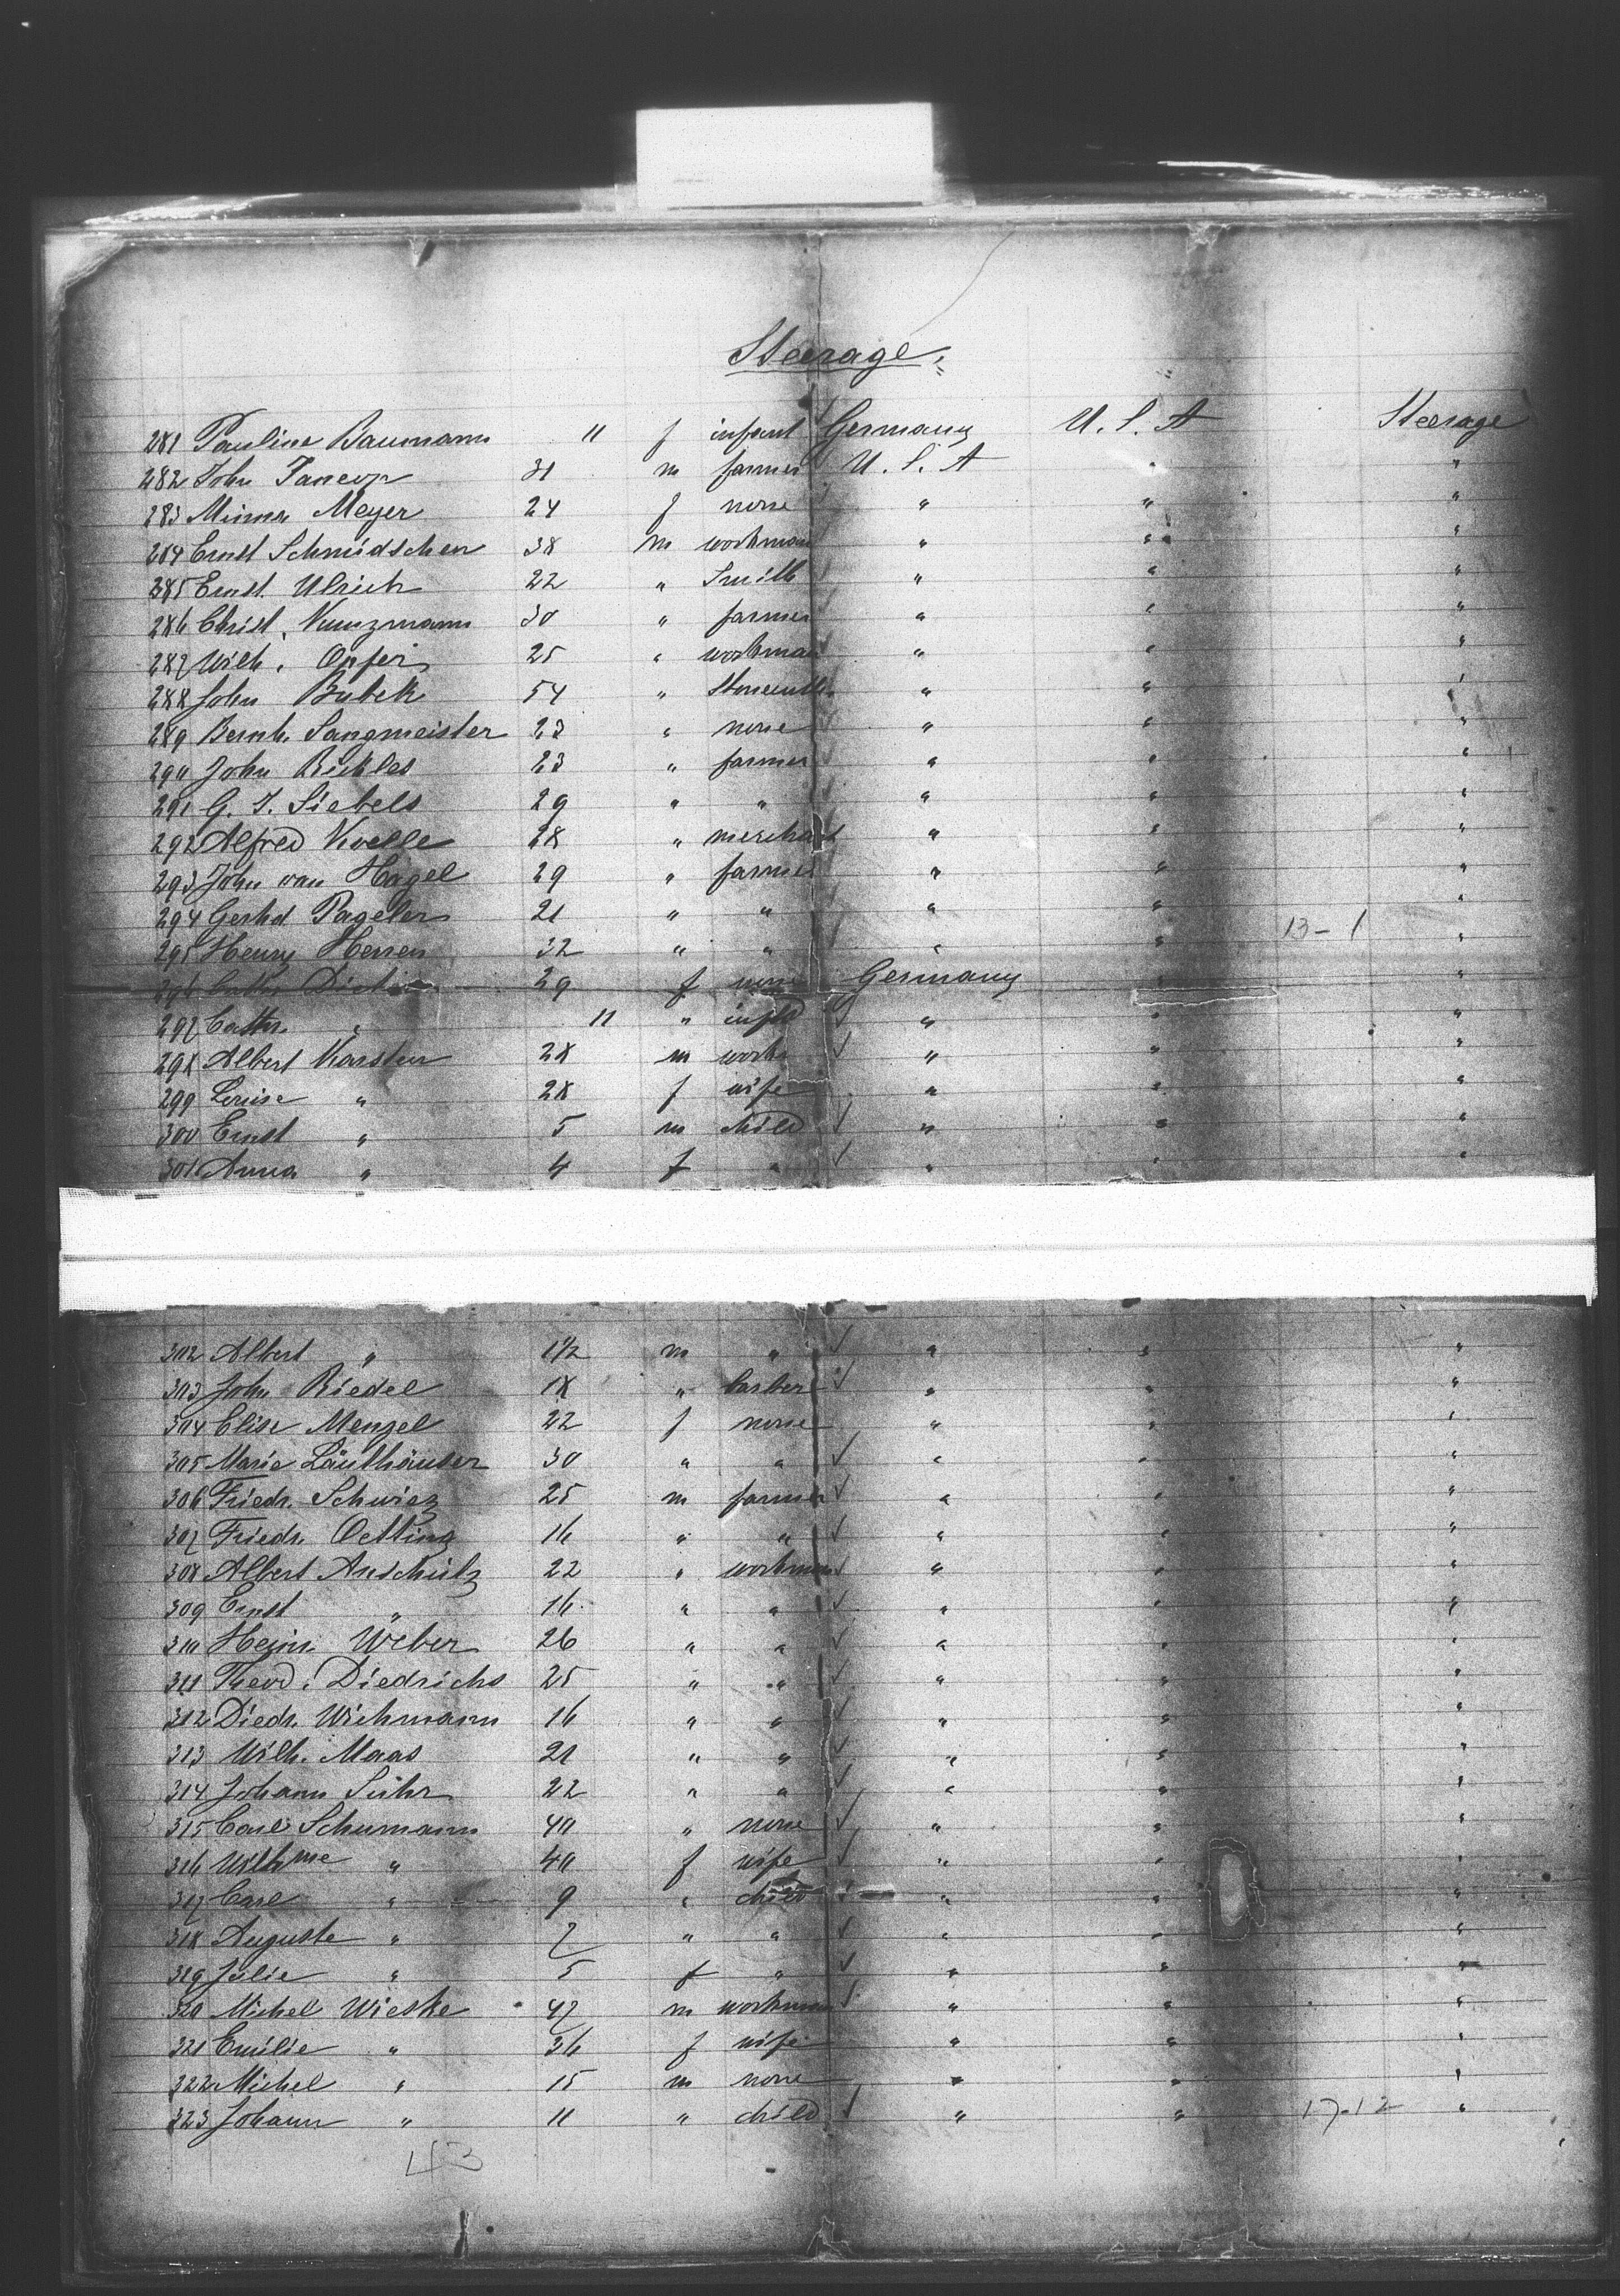 Steerage.
281 Pauline Baumann 11 f infant Germany U. S. A Steerage
282 John Janeop 31 m farmer U. S. A " "
283 Minna Meyer 24 f none " " "
284 Ernst Schmidtschen 38 m workman " " "
285 Ernst Ulrich 22 " Smith " " "
286 Christ. Kunzmann 30 " farmer " " "
287 Wilh. Opfer 25 " workman " " "
288 John Bubek 54 " Stonecutter " " "
289 Bernh. Sangmeister 23 " none " " "
290 John Rickles 23 " farmer " " "
291 G. J. Siebels 29 " " " " "
292 Alfred Koelle 28 " merchant " " "
293 John van Hagel 29 " farmer " " "
294 Gerhd Pagelers 21 " " " " "
295 Henry Herren 32 " " " " 13-1 "
296 29 f none Germany " "
297 Cath. " 11 " infant " " "
298 Albert Karsten 28 m work " " "
299 Louise " 28 f wife " " "
300 Ernst " 5 m child " " "
301 Anna " 4 f " " " "
302 Albert " 1 1/2 m " " " "
303 John Riedel 18 " barber " " "
304 Elise Menzel 22 f none " " "
305 Marie Läuthäuser 30 " " " " "
306 Friedr. Schwiez 25 m farmer " " "
307 Friedr. Oetting 16 " " " " "
308 Albert Anschütz 22 " workman " " "
309 Ernst " 16 " " " " "
310 Hein. Weber 26 " " " " "
311 Theod. Diedrichs 25 " " " " "
312 Diedr. Wichmann 16 " " " " "
313 Wilh. Maas 21 " " " " "
314 Johann Suhr 22 " " " " "
315 Carl Schumann 40 " none " " "
316 Wilhme " 40 f wife " " "
317 Carl " 9 " child " " "
318 Auguste " 7 " " " " "
319 Julie " 5 f " " " "
320 Michel Wieske 47 m workman " " "
321 Emilie " 36 f wife " " "
322 Michel " 15 m none " " "
323 Johann " 11 " child " " 17-12 "
43